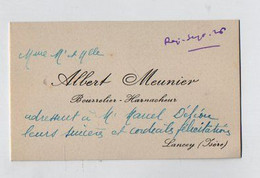 Mme Mr et Mlle
Albert Meunier
Bourrelier-Harnacheur
adressent à Mr Marcel
leurs sincères et cordiales félicitations
Lancey (Isère)